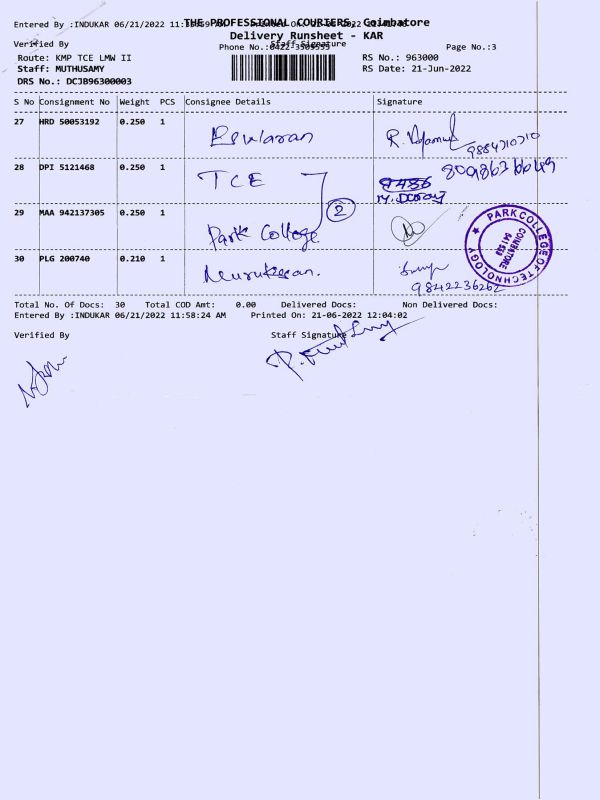 Entered By :INDUKAR 06/21/2022
THE PROFESSIONAL COURIERS, Coimbatore
Delivery Runsheet - KAR
Verified By
Staff Signature
Phone No.:0422
Page No.:3
Route: KMP TCE LMW II
RS No.: 963000
Staff: MUTHUSAMY
RS Date: 21-Jun-2022
DRS No.: DCJB96300003
S No Consignment No Weight PCS Consignee Details Signature
27 HRD 50053192 0.250 1 Eswaran
28 DPI 5121468 0.250 1 TCE
29 MAA 942137305 0.250 1 Park College 2
PARK COLLEGE OF TECHNOLOGY
COIMBATORE
641 659
30 PLG 200740 0.210 1 Murukesan.
9842236262
Total No. Of Docs: 30 Total COD Amt: 0.00 Delivered Docs: Non Delivered Docs:
Entered By :INDUKAR 06/21/2022 11:58:24 AM Printed On: 21-06-2022 12:04:02
Verified By Staff Signature